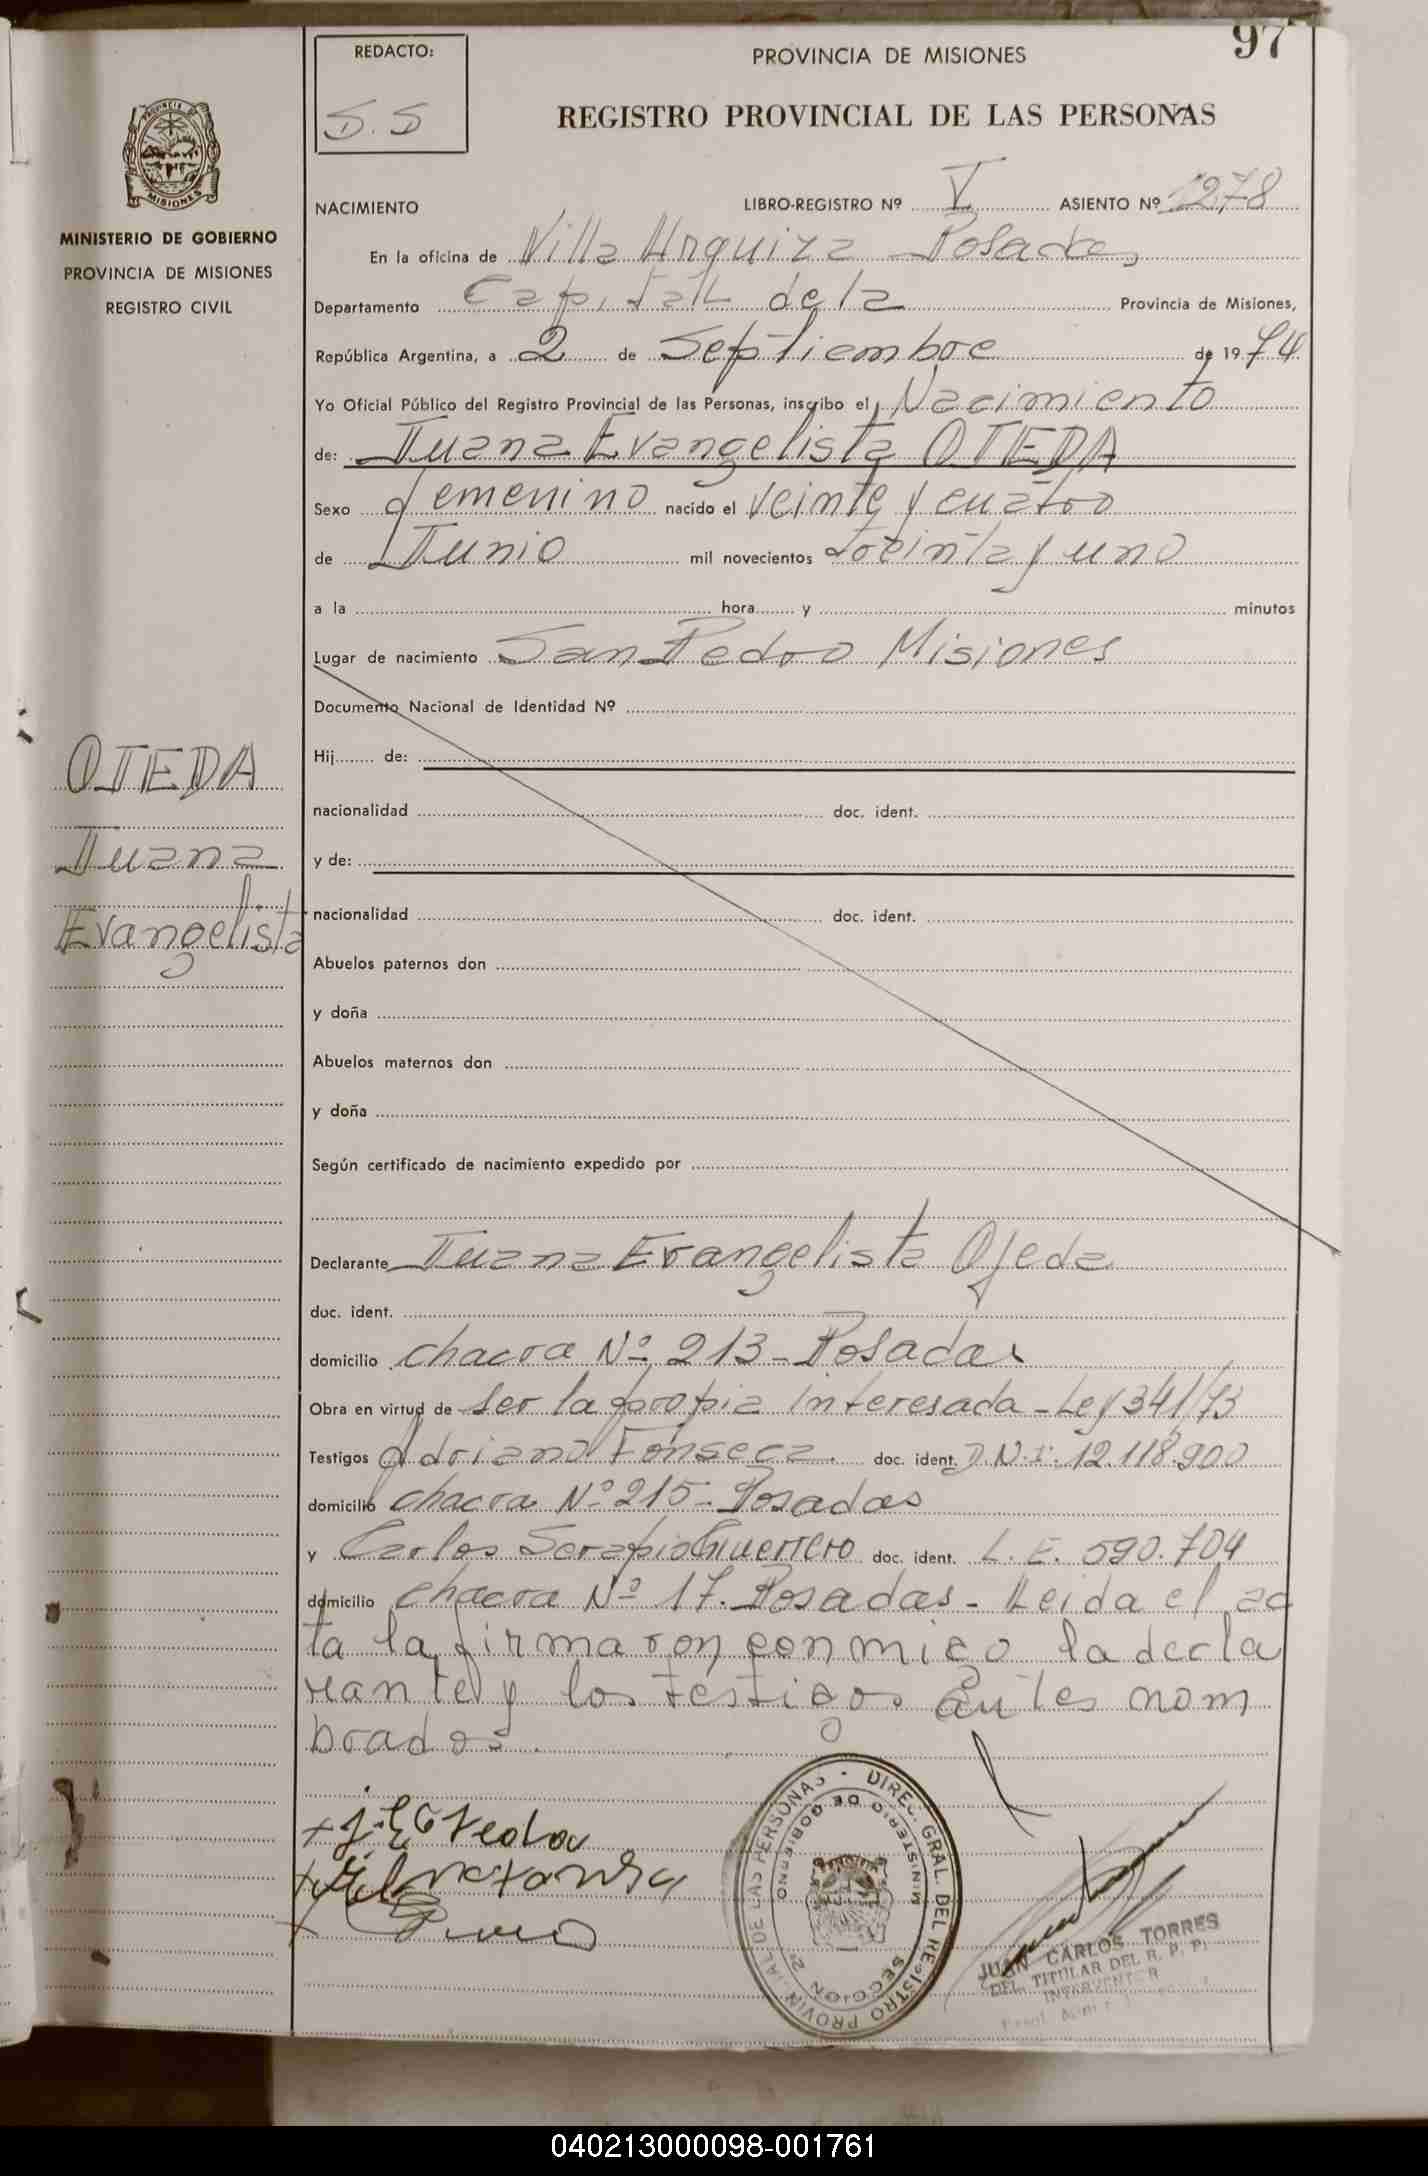 97
REDACTO:
S.S
PROVINCIA DE MISIONES
REGISTRO PROVINCIAL DE LAS PERSONAS
PROVINCIA DE
MISIONES
MINISTERIO DE GOBIERNO
PROVINCIA DE MISIONES
REGISTRO CIVIL
NACIMIENTO LIBRO-REGISTRO Nº V ASIENTO Nº 1278
En la oficina de Villa Urquiza Posadas,
Departamento Capital de la Provincia de Misiones,
República Argentina, a 2 de Septiembre de 1974
Yo Oficial Público del Registro Provincial de las Personas, inscribo el Nacimiento
de: Juana Evangelista OJEDA
Sexo femenino nacido el veinte y cuatro
de Junio mil novecientos treinta y uno
a la hora y minutos
Lugar de nacimiento San Pedro Misiones
Documento Nacional de Identidad Nº
Hij de:
nacionalidad doc. ident.
y de:
nacionalidad doc. ident.
Abuelos paternos don
y doña
Abuelos maternos don
y doña
Según certificado de nacimiento expedido por
OJEDA
Juana
Evangelista
Declarante Juana Evangelista Ojeda
doc. ident.
domicilio chacra Nº 213 - Posadas
Obra en virtud de ser la propia interesada - Ley 341/73
Testigos Adriano Fonseca. doc. ident. D.N.I. 12.118.900
domicilio chacra Nº 215 - Posadas
y Carlos Serapio Guerrero doc. ident. L.E. 590.704
domicilio chacra Nº 17. Posadas - Leida el ac
ta la firmaron conmigo la decla
rante y los testigos antes nom
brados.
DIREC. GRAL. DEL REGISTRO PROVINCIAL DE LAS PERSONAS
MINISTERIO DE GOBIERNO
SECCION 2ª
JUAN CARLOS TORRES
DEL. TITULAR DEL R. P. P.
040213000098-001761